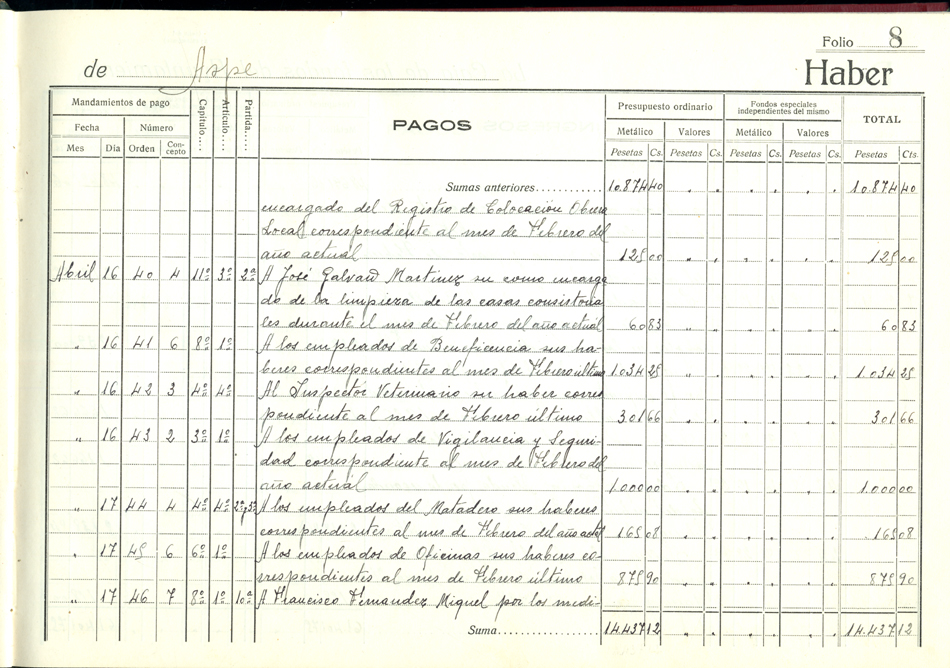 Folio 8
de Aspe
Haber
Mandamientos de pago Capítulo.... Artículo.... Partida.... PAGOS Presupuesto ordinario Fondos especiales independientes del mismo TOTAL
Fecha Número Metálico Valores Metálico Valores
Mes Día Orden Concepto Pesetas Cs. Pesetas Cs. Pesetas Cs. Pesetas Cs. Pesetas Cts.
Sumas anteriores............ 10.874 40 " " " " " " 10.874 40
encargado del Registro de Colocación Obrera
Local correspondiente al mes de Febrero del
año actual 125 00 " " " " " " 125 00
Abril 16 40 4 11º 3º 2ª A José Galvañ Martinez su como encarga
do de la limpieza de las casas consistoria
les durante el mes de Febrero del año actual 60 83 " " " " " " 60 83
" 16 41 6 8º 1º A los empleados de Beneficencia sus ha-
beres correspondientes al mes de Febrero último 1.034 25 " " " " " " 1.034 25
" 16 42 3 4º 4º Al Inspector Veterinario su haber corres
pondiente al mes de Febrero último 301 66 " " " " " " 301 66
" 16 43 2 3º 1º A los empleados de Vigilancia y Seguri-
dad correspondiente al mes de Febrero del
año actual 1.000 00 " " " " " " 1.000 00
" 17 44 4 4º 4º 2ª y 3ª A los empleados del Matadero sus haberes
correspondientes al mes de Febrero del año actual 165 08 " " " " " " 165 08
" 17 45 6 6º 1º A los empleados de Oficinas sus haberes co-
rrespondientes al mes de Febrero último 875 90 " " " " " " 875 90
" 17 46 7 8º 1º 10ª A Francisco Fernandez Miguel por los medi-
Suma..................... 14.437 12 " " " " " " 14.437 12